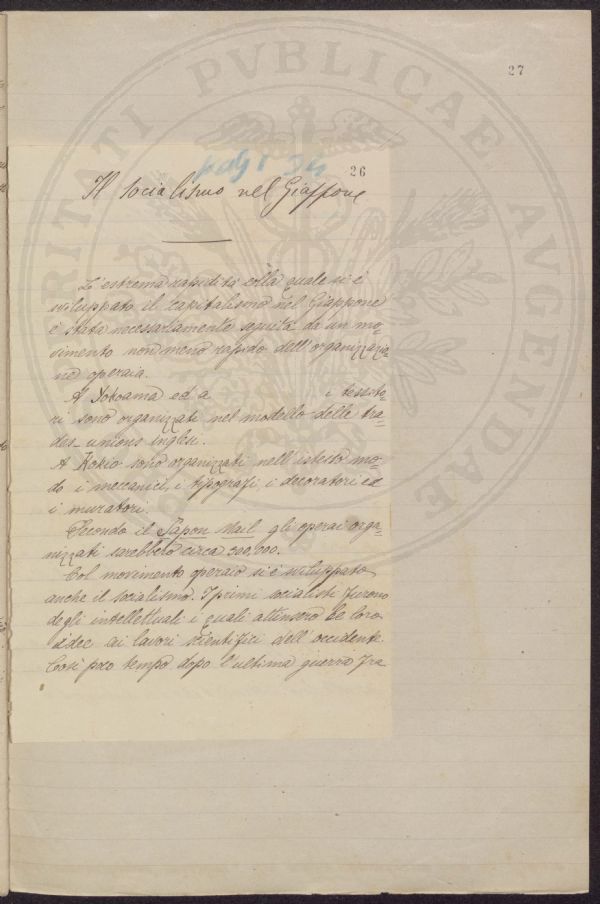 27
pag 1 34
26
Il Socialismo nel Giappone
L'estrema rapidità colla quale si è
sviluppato il capitalismo nel Giappone
è stata necessariamente seguita da un mo-
vimento non meno rapido dell'organizzazio-
ne operaia.
A Yokoama ed a i tessito-
ri sono organizzati nel modello delle tra-
des unions inglesi.
A Kokio sono organizzati nell'istesso mo-
do i meccanici, i tipografi, i decoratori ed
i muratori.
Secondo il Japon Mail gli operai orga-
nizzati sarebbero circa 300,000.
Col movimento operaio si è sviluppato
anche il socialismo. I primi socialisti furono
degli intellettuali i quali attinsero le loro
idee ai lavori scientifici dell'occidente.
Così poco tempo dopo l'ultima guerra fra